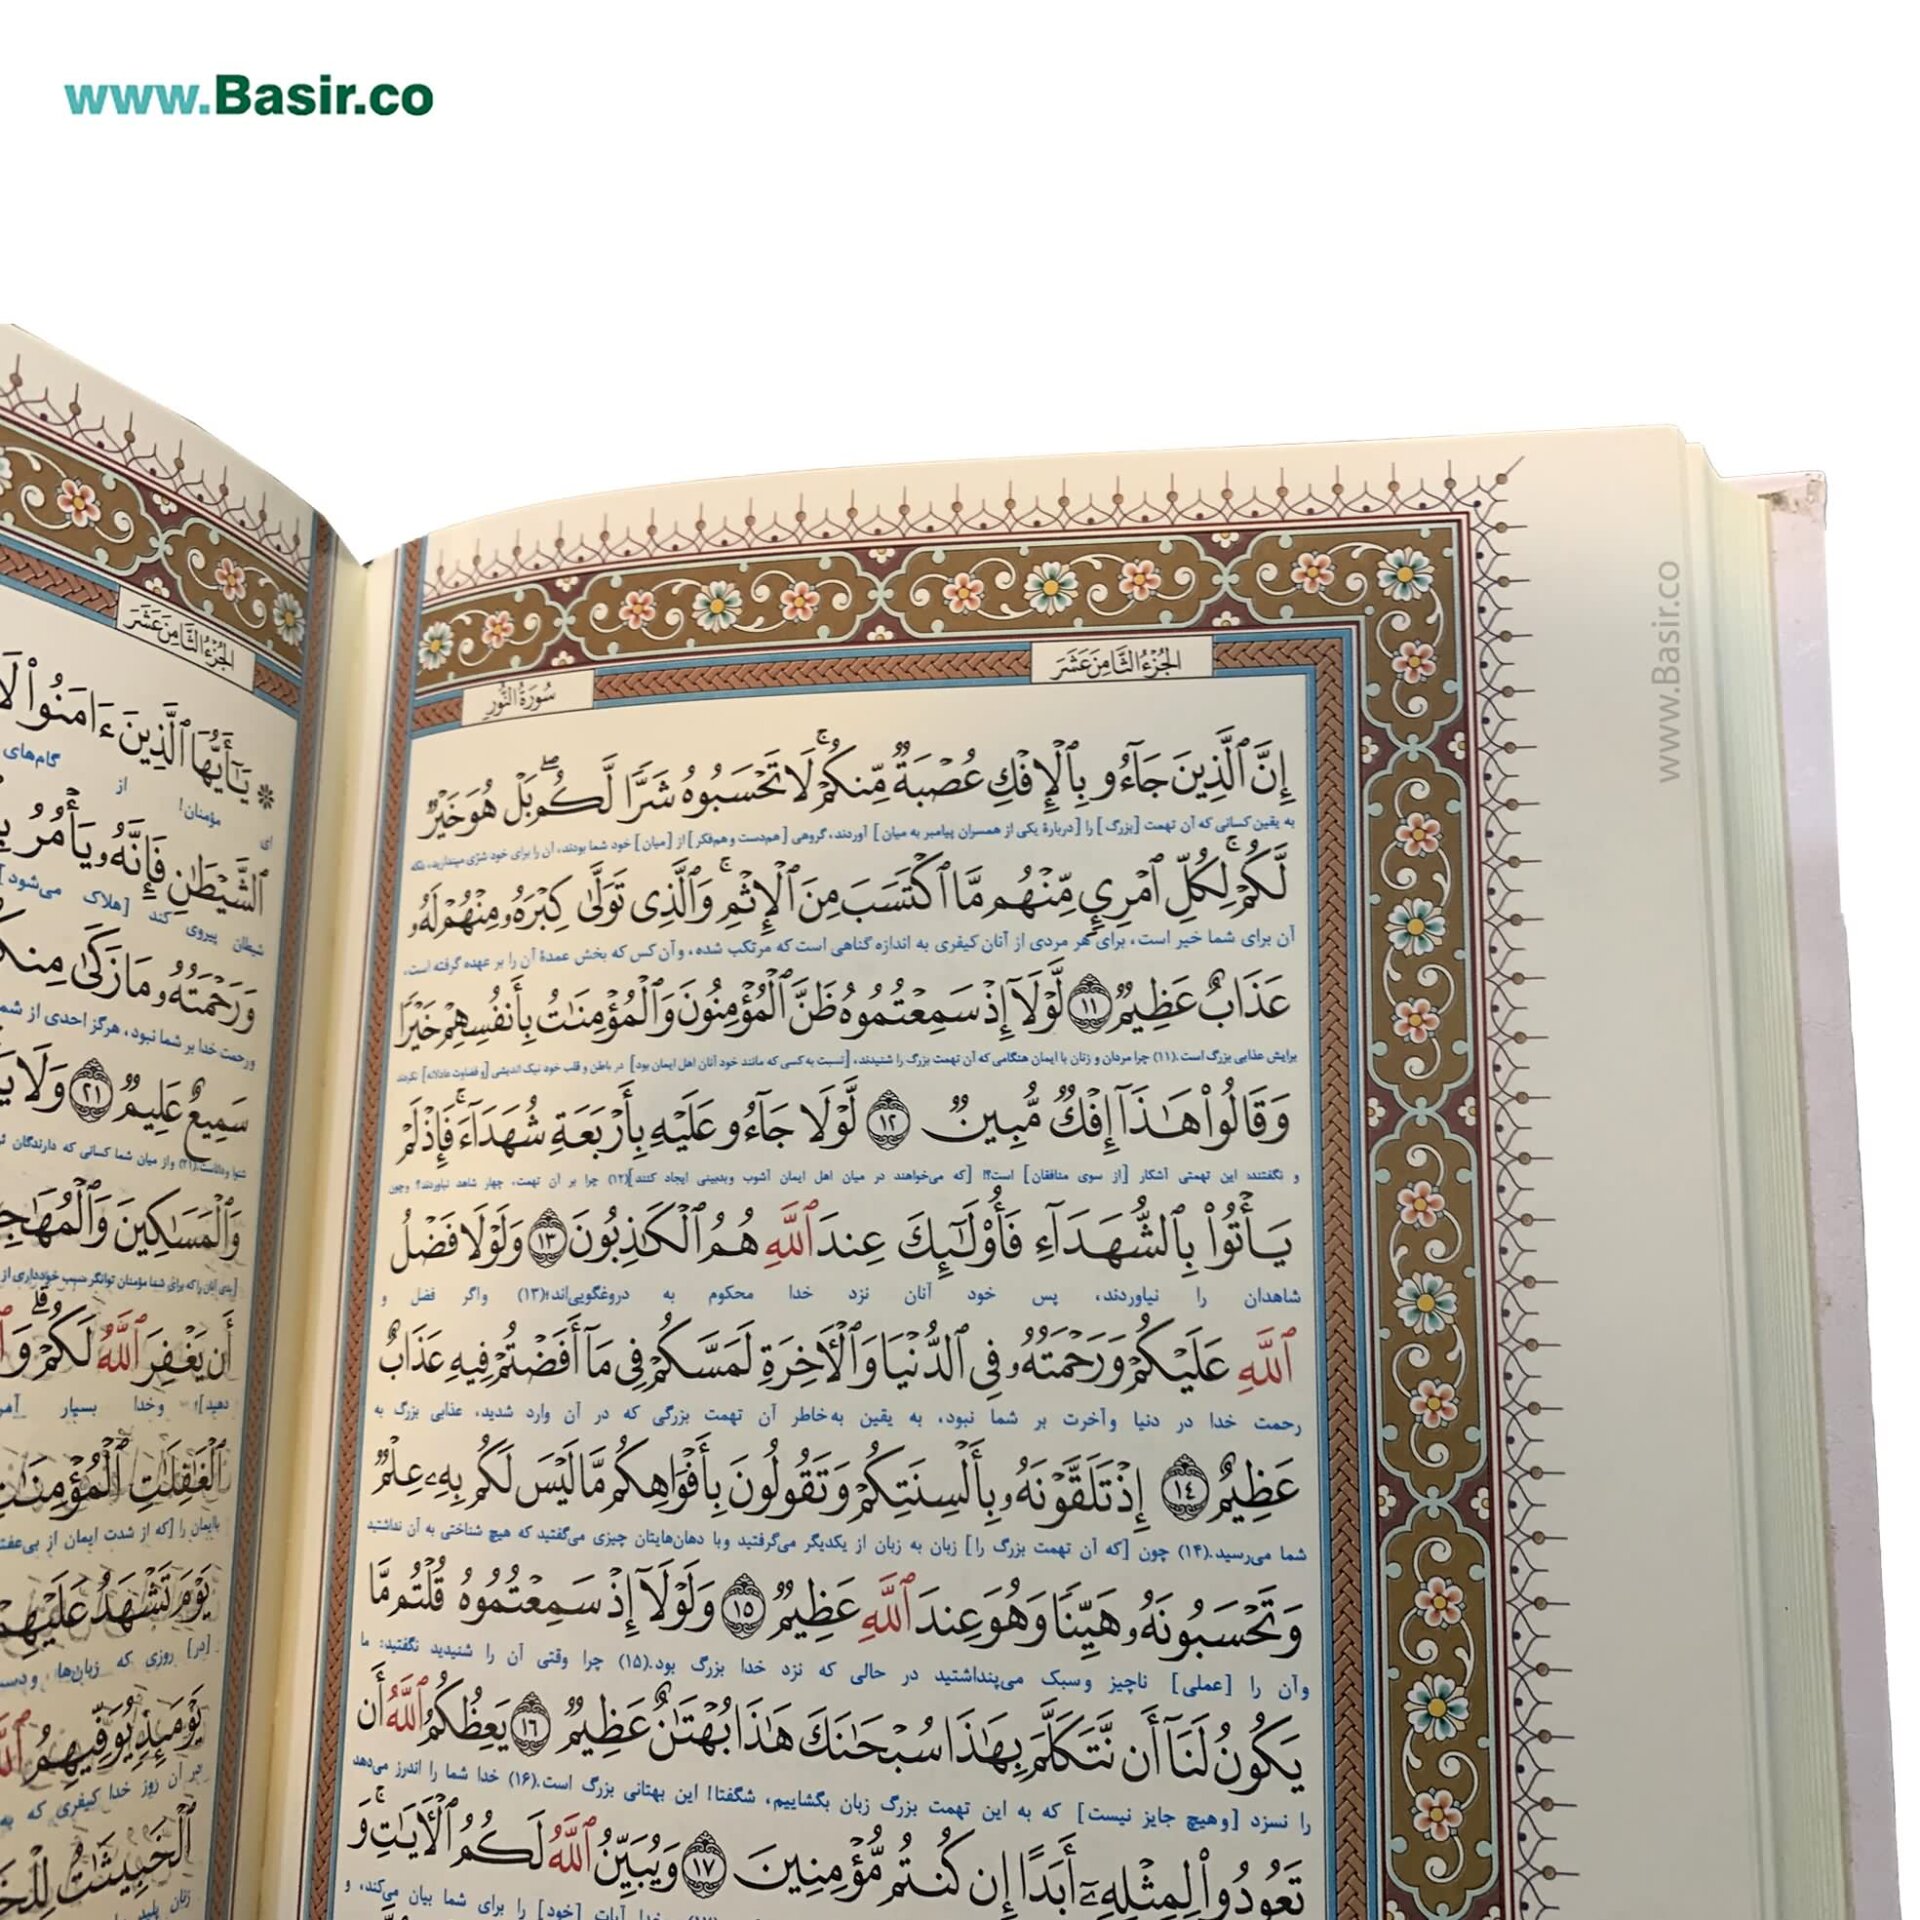 www.Basir.co
www.Basir.co
الجُزءُ الثَّامِنَ عَشَرَ
سُورَةُ النُّورِ
إِنَّ ٱلَّذِينَ جَآءُو بِٱلۡإِفۡكِ عُصۡبَةٞ مِّنكُمۡۚ لَا تَحۡسَبُوهُ شَرّٗا لَّكُمۖ بَلۡ هُوَ خَيۡرٞ
به یقین کسانی که آن تهمت [بزرگ] را [دربارهٔ یکی از همسران پیامبر به میان] آوردند، گروهی [هم‌دست و هم‌فکر] از [میان] خود شما بودند، آن را برای خود شرّی مپندارید، بلکه
لَّكُمۡۚ لِكُلِّ ٱمۡرِيٕٖ مِّنۡهُم مَّا ٱكۡتَسَبَ مِنَ ٱلۡإِثۡمِۚ وَٱلَّذِي تَوَلَّىٰ كِبۡرَهُۥ مِنۡهُمۡ لَهُۥ
آن برای شما خیر است، برای هر مردی از آنان کیفری به اندازه گناهی است که مرتکب شده، و آن کس که بخش عمدهٔ آن را بر عهده گرفته است،
عَذَابٌ عَظِيمٞ ١١ لَّوۡلَآ إِذۡ سَمِعۡتُمُوهُ ظَنَّ ٱلۡمُؤۡمِنُونَ وَٱلۡمُؤۡمِنَٰتُ بِأَنفُسِهِمۡ خَيۡرٗا
برایش عذابی بزرگ است.(۱۱) چرا مردان و زنان با ایمان هنگامی که آن تهمت بزرگ را شنیدند، [نسبت به کسی که مانند خود آنان اهل ایمان بود] در باطن و قلب خود نیک اندیشی [و قضاوت عادلانه] نکردند
وَقَالُواْ هَٰذَآ إِفۡكٞ مُّبِينٞ ١٢ لَّوۡلَا جَآءُو عَلَيۡهِ بِأَرۡبَعَةِ شُهَدَآءَۚ فَإِذۡ لَمۡ
و نگفتند: این تهمتی آشکار [از سوی منافقان] است؟! [که می‌خواهند در میان اهل ایمان آشوب و بدبینی ایجاد کنند](۱۲) چرا بر آن تهمت، چهار شاهد نیاوردند؟ و چون
يَأۡتُواْ بِٱلشُّهَدَآءِ فَأُوْلَٰٓئِكَ عِندَ ٱللَّهِ هُمُ ٱلۡكَٰذِبُونَ ١٣ وَلَوۡلَا فَضۡلُ
شاهدان را نیاوردند، پس خود آنان نزد خدا محکوم به دروغگویی‌اند؛(۱۳) واگر فضل و
ٱللَّهِ عَلَيۡكُمۡ وَرَحۡمَتُهُۥ فِي ٱلدُّنۡيَا وَٱلۡأٓخِرَةِ لَمَسَّكُمۡ فِي مَآ أَفَضۡتُمۡ فِيهِ عَذَابٌ
رحمت خدا در دنیا و آخرت بر شما نبود، به یقین به‌خاطر آن تهمت بزرگی که در آن وارد شدید، عذابی بزرگ به
عَظِيمٌ ١٤ إِذۡ تَلَقَّوۡنَهُۥ بِأَلۡسِنَتِكُمۡ وَتَقُولُونَ بِأَفۡوَاهِكُم مَّا لَيۡسَ لَكُم بِهِۦ عِلۡمٞ
شما می‌رسید.(۱۴) چون [که آن تهمت بزرگ را] زبان به زبان از یکدیگر می‌گرفتید و با دهان‌هایتان چیزی می‌گفتید که هیچ شناختی به آن نداشتید
وَتَحۡسَبُونَهُۥ هَيِّنٗا وَهُوَ عِندَ ٱللَّهِ عَظِيمٞ ١٥ وَلَوۡلَآ إِذۡ سَمِعۡتُمُوهُ قُلۡتُم مَّا
وآن را [عملی] ناچیز و سبک می‌پنداشتید در حالی که نزد خدا بزرگ بود.(۱۵) چرا وقتی آن را شنیدید نگفتید: ما
يَكُونُ لَنَآ أَن نَّتَكَلَّمَ بِهَٰذَا سُبۡحَٰنَكَ هَٰذَا بُهۡتَٰنٌ عَظِيمٞ ١٦ يَعِظُكُمُ ٱللَّهُ أَن
را نسزد [و هیچ جایز نیست] که به این تهمت بزرگ زبان بگشاییم، شگفتا! این بهتانی بزرگ است.(۱۶) خدا شما را اندرز می‌دهد
تَعُودُواْ لِمِثۡلِهِۦٓ أَبَدًا إِن كُنتُم مُّؤۡمِنِينَ ١٧ وَيُبَيِّنُ ٱللَّهُ لَكُمُ ٱلۡأٓيَٰتِۚ وَ
خدا آیات [خود] را برای شما بیان می‌کند، و
الجُزءُ الثَّامِنَ عَشَرَ
يَٰٓأَيُّهَا ٱلَّذِينَ ءَامَنُواْ لَا
ای مؤمنان! از گام‌های
ٱلشَّيۡطَٰنِ فَإِنَّهُۥ يَأۡمُرُ
شیطان پیروی کند [هلاک می‌شود]
وَرَحۡمَتُهُۥ مَا زَكَىٰ
و رحمت خدا بر شما نبود، هرگز احدی از
سَمِيعٌ عَلِيمٞ ٢١ وَلَا
شنوا و داناست.(۲۱) و از میان شما کسانی که دارندگان
وَٱلۡمَسَٰكِينَ
أَن يَغۡفِرَ ٱللَّهُ لَكُمۡۚ
وخدا بسیار
ٱلۡغَٰفِلَٰتِ
با ایمان را [که از شدت ایمان از
يَوۡمَ تَشۡهَدُ عَلَيۡهِمۡ
[در] روزی که زبان‌ها و
يَوۡمَئِذٖ يُوَفِّيهِمُ
در آن روز خدا کیفری که به
ٱلۡخَبِيثَٰتُ
زنان پلید